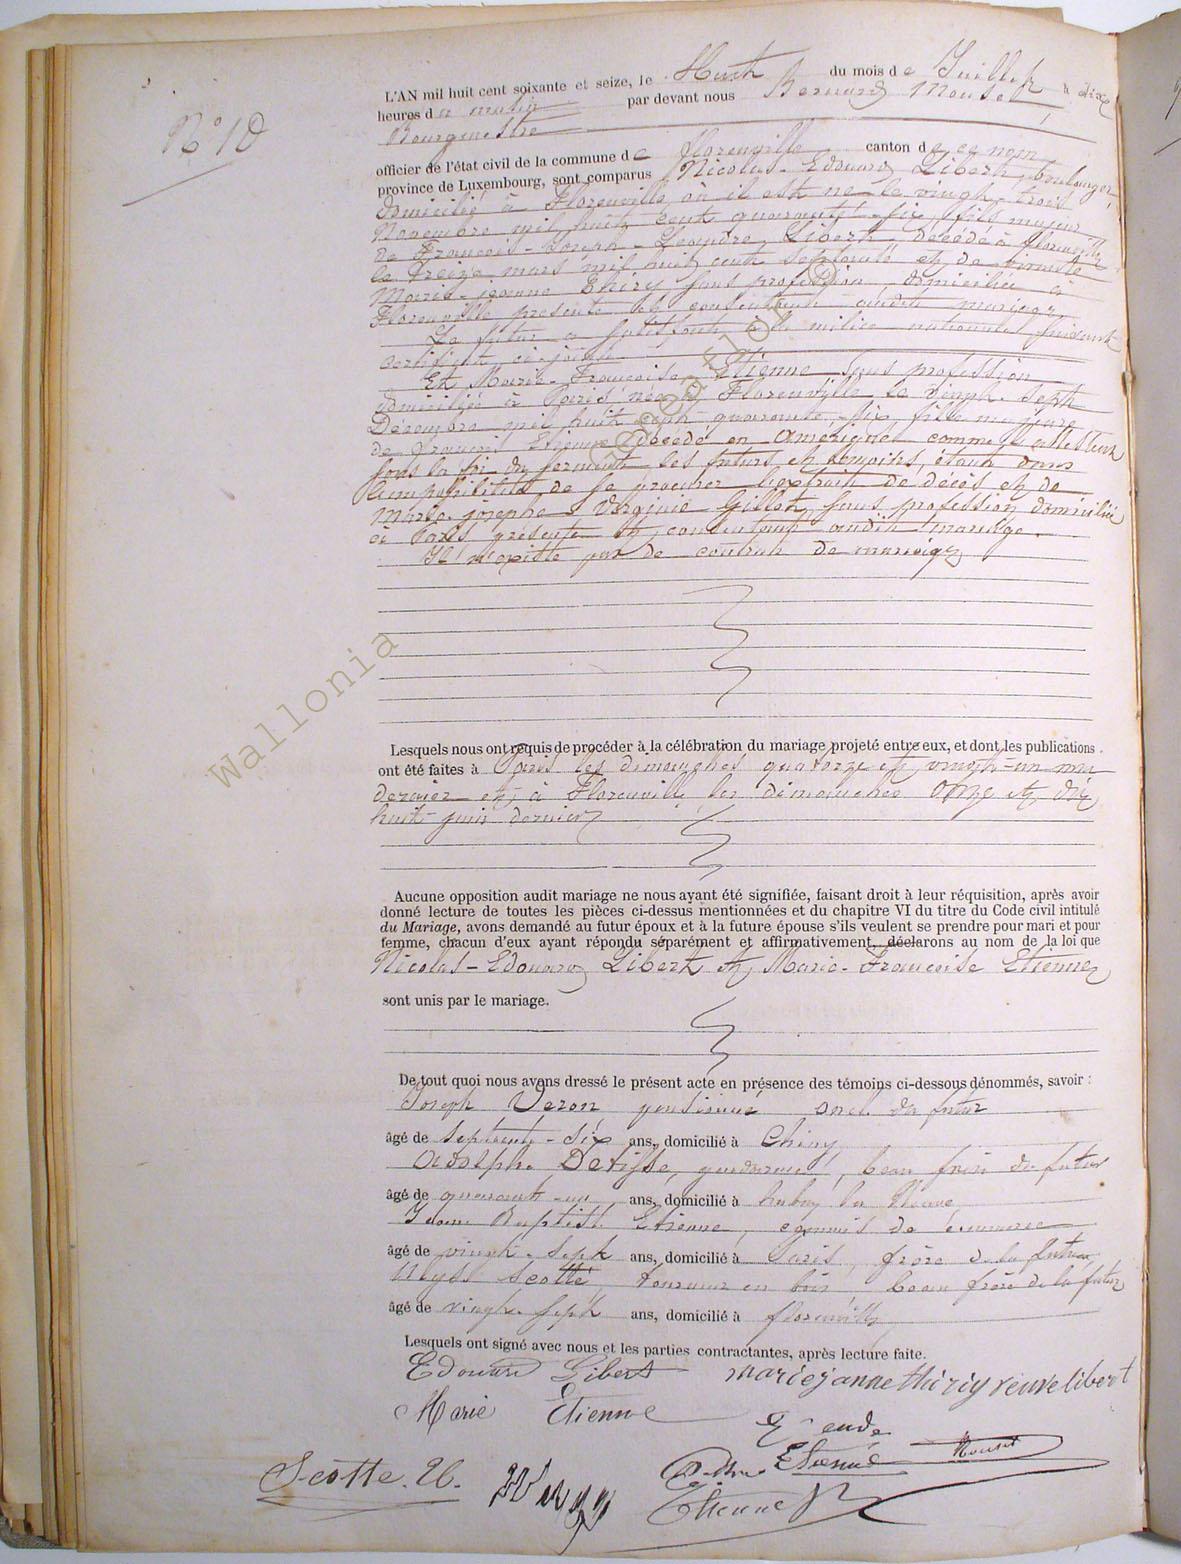 N° 10
L'AN mil huit cent soixante et seize, le Huit du mois de Juillet à dix
heures du matin par devant nous Bernard Mouset
Bourgmestre
officier de l'état civil de la commune de Florenville canton de ce nom
province de Luxembourg, sont comparus Nicolas-Edouard Libert, boulanger
domicilié à Florenville où il est né le vingt-trois
Novembre mil huit cent quarante-six, fils majeur
de François-Joseph-Léandre Libert, décédé à Florenville
le treize mars mil huit cent septante et de
Marie-jeanne Thiry sans profession, domiciliée à
Florenville présente et consentant audit mariage,
Le futur a satisfait à la milice nationale suivant
certificat ci-joint
Et Marie-Françoise Etienne sans profession
domiciliée à Paris née à Florenville le vingt-sept
Décembre mil huit cent quarante-six fille majeure
de François Etienne décédé en Amérique comme attesté
sous la foi du serment les futurs et témoins, étant dans
l'impossibilité de se procurer l'extrait de décès et de
Marie-josephe-Virginie Gillet, sans profession domiciliée
à Paris présente et consentant audit mariage.
Il n'existe pas de contrat de mariage
Lesquels nous ont requis de procéder à la célébration du mariage projeté entre eux, et dont les publications
ont été faites à Paris les dimanches quatorze et vingt-un mai
dernier et à Florenville les dimanches onze et dix
huit juin dernier
Aucune opposition audit mariage ne nous ayant été signifiée, faisant droit à leur réquisition, après avoir
donné lecture de toutes les pièces ci-dessus mentionnées et du chapitre VI du titre du Code civil intitulé
du Mariage, avons demandé au futur époux et à la future épouse s'ils veulent se prendre pour mari et pour
femme, chacun d'eux ayant répondu séparément et affirmativement, déclarons au nom de la loi que
Nicolas-Edouard Libert et Marie-Françoise Etienne
sont unis par le mariage.
De tout quoi nous avons dressé le présent acte en présence des témoins ci-dessous dénommés, savoir :
Joseph Veron, pensionné oncle du futur
âgé de septante-six ans, domicilié à Chiny
Adolphe Detiffe, gendarme, beau frère du futur
âgé de quarante-un ans, domicilié à
Jean Baptiste Etienne, commis de commerce
âgé de vingt-sept ans, domicilié à Paris, frère de la future
Ulysse Scotté tourneur en bois, beau frère de la future
âgé de vingt-sept ans, domicilié à florenville
Lesquels ont signé avec nous et les parties contractantes, après lecture faite.
Edouard Libert mariejanne thiry veuve libert
Marie Etienne
Etienne Mouset
Scotté. U.
Etienne
Wallonia